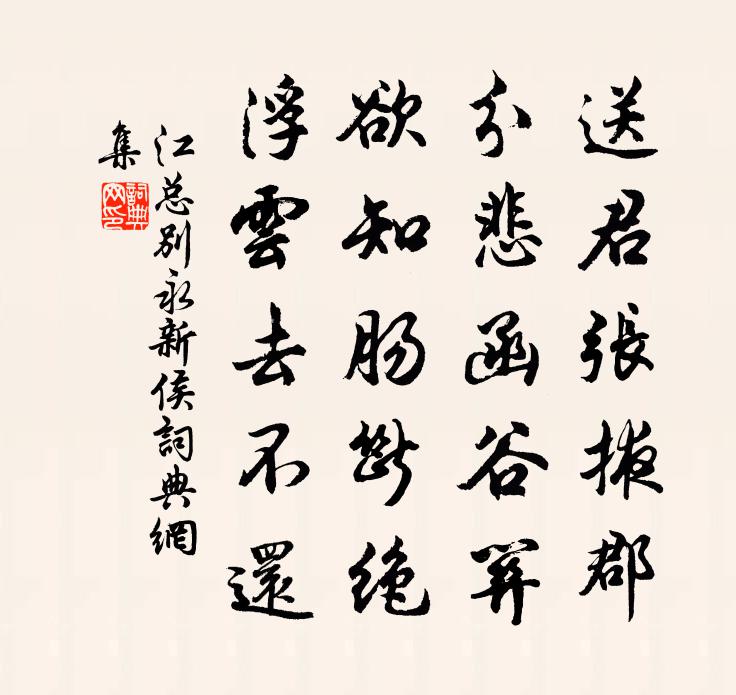 送君張掖郡
分悲函谷關
欲知腸斷絶
浮雲去不還
江总別永新侯詞典網
集
詞典
网印